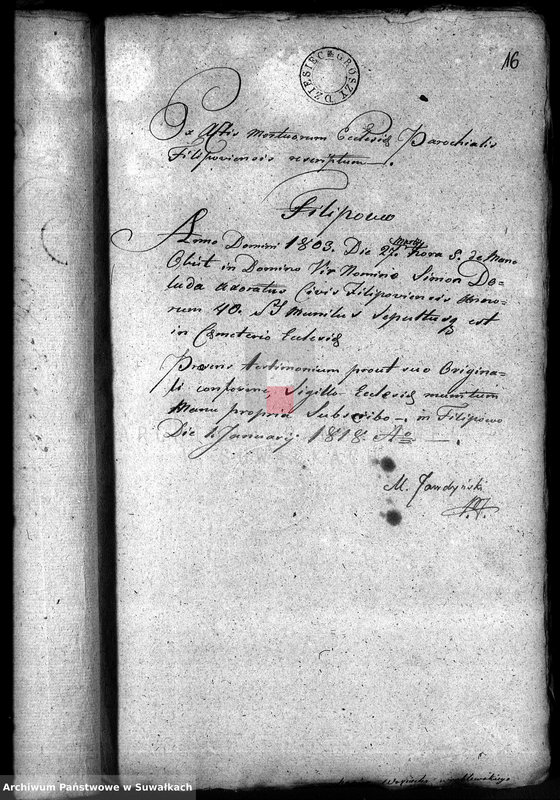 16
DZIESIĘĆ GROSZY
Ex Actis Mortuorum Ecclesiæ Parochialis
Filipoviensis rescriptum.
Filipowo
Anno Domini 1803. Die 27. Martij Hora 8. de Mane
Obiit in Domino Vir Nomine Simon Do-
luda adoratus Civis Filipoviensis Anno-
rum 40. SS Munitus Sepultusq est
in Cæmeterio Ecclesiæ
Præsens Testimonium prout suo Origina-
li conforme, Sigillo Ecclesiæ munitum
Manu propria Subscribo, in Filipowo
Die 1. January 1818 A
M. Jawdyński
Archiwum Państwowe w Suwałkach